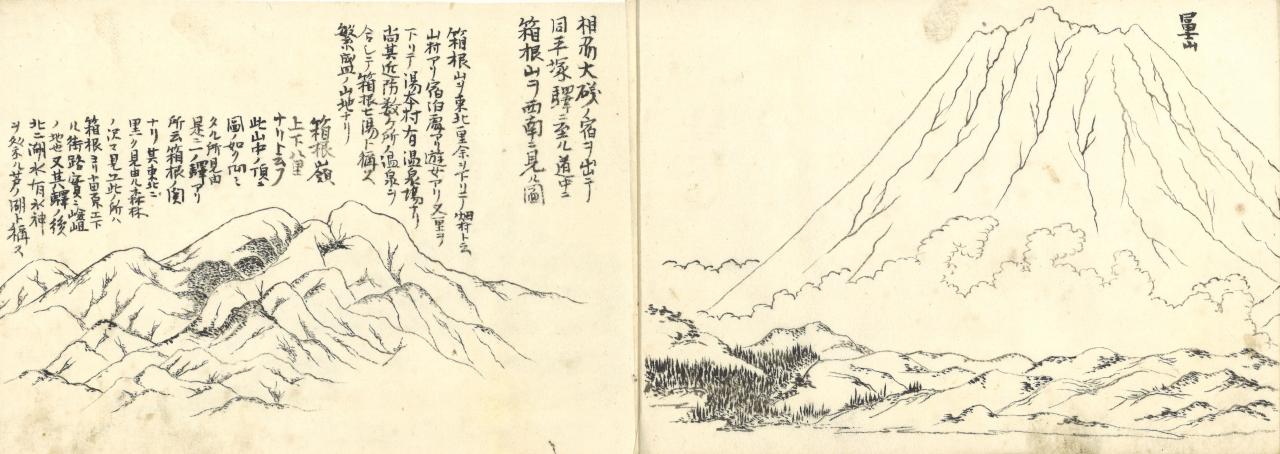 冨士山
相州大磯ノ宿ヲ出テ
同平塚驛ニ至ル道中ニ
箱根山ヲ西南ニ見ル圖
箱根山ヲ東北一里余シ下リニ畑村ト云
山村アリ宿泊處アリ遊女アリ又一里ヲ
下リテ湯本村有温泉場ナリ
尚其近防数ケ所ノ温泉ヲ
合シテ箱根七湯ト稱ス
繁盛ノ山地ナリ
箱根嶺
上下八里
ナリト云フ
此山中ノ頂ニ
圖ノ如ク凹ミ
タル所見由
是ニ一ノ驛アリ
所云箱根ノ関
ナリ其東北ニ
黒ク見由ル森林
ノ沢マ見エ此所ハ
箱根ヨリ小田原エ下
ル街路實ニ嶮岨
ノ地也又其驛ノ後
北ニ湖水有水神
ヲ祭ル芦ノ湖ト稱ス